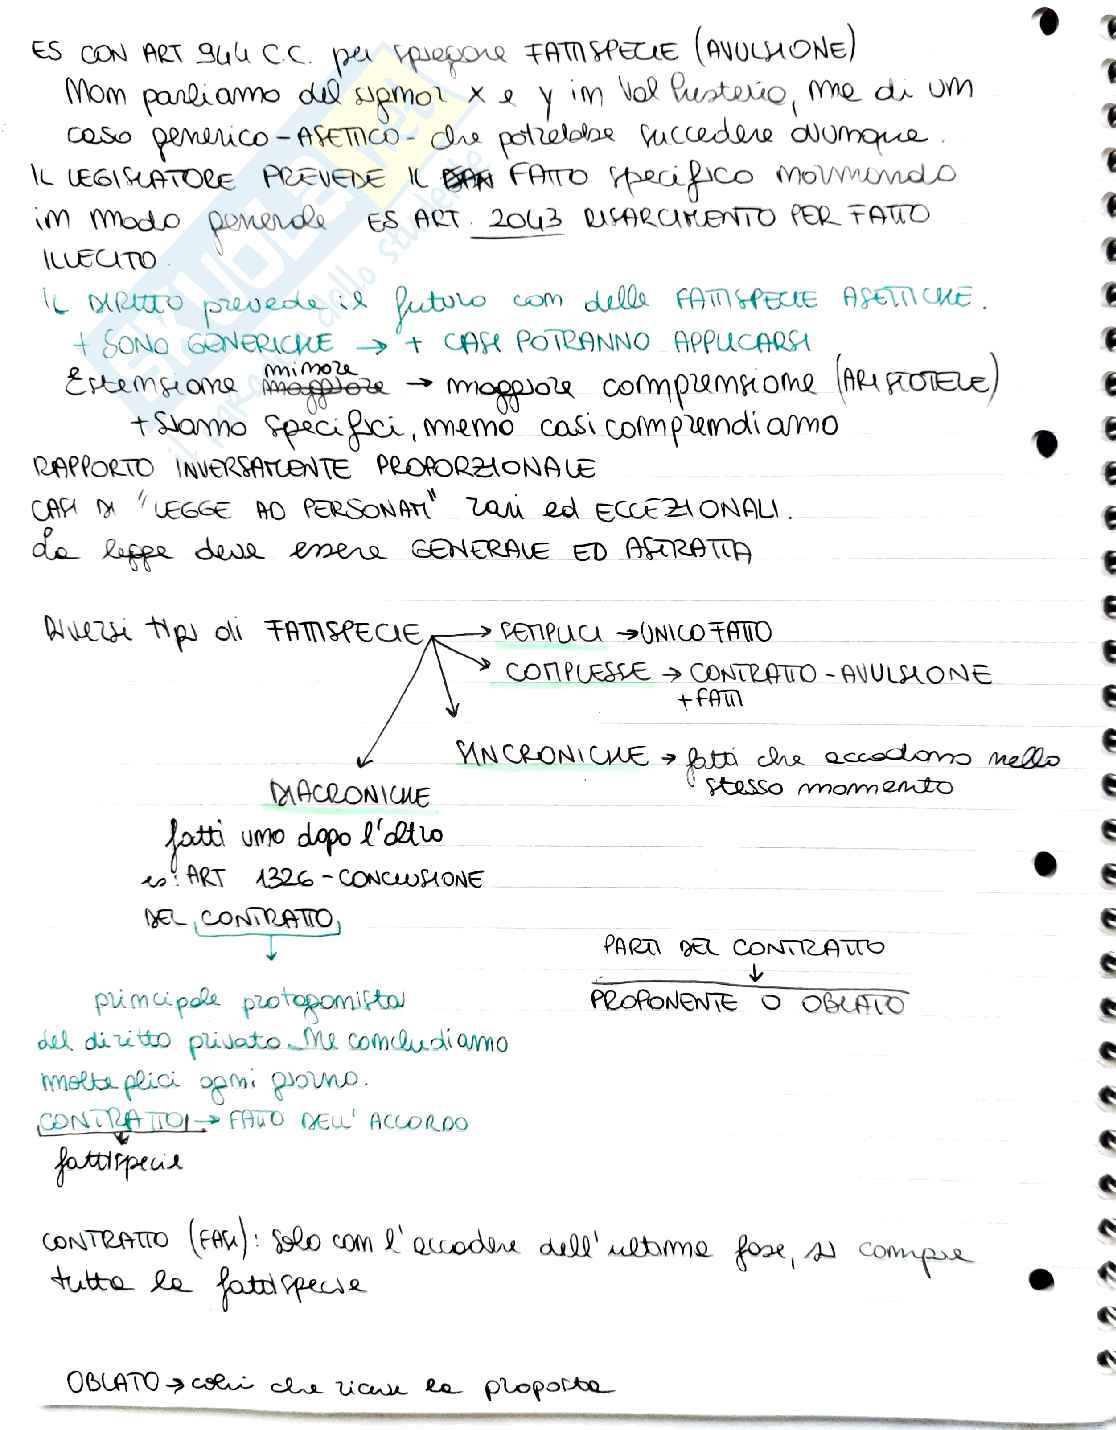 ES CON ART 944 C.C. per spiegare FATTISPECIE (AVULSIONE)
Non parliamo del signor x e y in Val Brusterio, ma di un
caso generico - ASETTICO - che potrebbe succedere ovunque.
IL LEGISLATORE PREVEDE IL FATTO specifico normando
in modo generale ES ART. 2043 RISARCIMENTO PER FATTO
ILLECITO.
IL DIRITTO prevede il futuro con delle FATTISPECIE ASETTICHE.
+ SONO GENERICHE → + CASI POTRANNO APPLICARSI
minore
Estensione maggiore → maggiore comprensione (ARISTOTELE)
+ siamo specifici, meno casi comprendiamo
RAPPORTO INVERSAMENTE PROPORZIONALE
CASI DI "LEGGE AD PERSONAM" rari ed ECCEZIONALI.
La legge deve essere GENERALE ED ASTRATTA
Diversi tipi di FATTISPECIE → SEMPLICI → UNICO FATTO
COMPLESSE → CONTRATTO - AVULSIONE
+ FATTI
SINCRONICHE → fatti che accadono nello
stesso momento
DIACRONICHE
fatti uno dopo l'altro
es: ART 1326 - CONCLUSIONE
DEL CONTRATTO
PARTI DEL CONTRATTO
↓
PROPONENTE O OBLATO
↓
principale protagonista
del diritto privato. Ne concludiamo
molteplici ogni giorno.
CONTRATTO → FATTO DELL'ACCORDO
fattispecie
CONTRATTO (FASI): solo con l'accadere dell'ultima fase, si compie
tutta la fattispecie
OBLATO → colui che riceve la proposta
SKUOLA.net
il paradiso dello studente